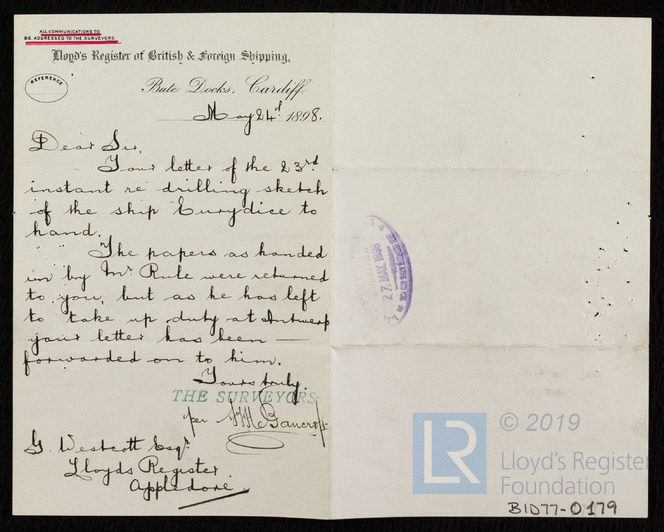 ALL COMMUNICATIONS TO
BE ADDRESSED TO THE SURVEYORS.
Lloyd's Register of British & Foreign Shipping,
REFERENCE
Bute Docks, Cardiff
May 24th 1898.
Dear Sir,
Your letter of the 23rd
instant re drilling sketch
of the ship Eurydice to
hand.
The papers as handed
in by Mr Rule were returned
to you, but as he has left
to take up duty at Antwerp
your letter has been —
forwarded on to him.
Yours truly.
THE SURVEYORS
per Bancroft
G. Westcott Esqr.
Lloyds Register
Appledore
27 MAY 1898
LR
© 2019
Lloyd's Register
Foundation
BID77-0179